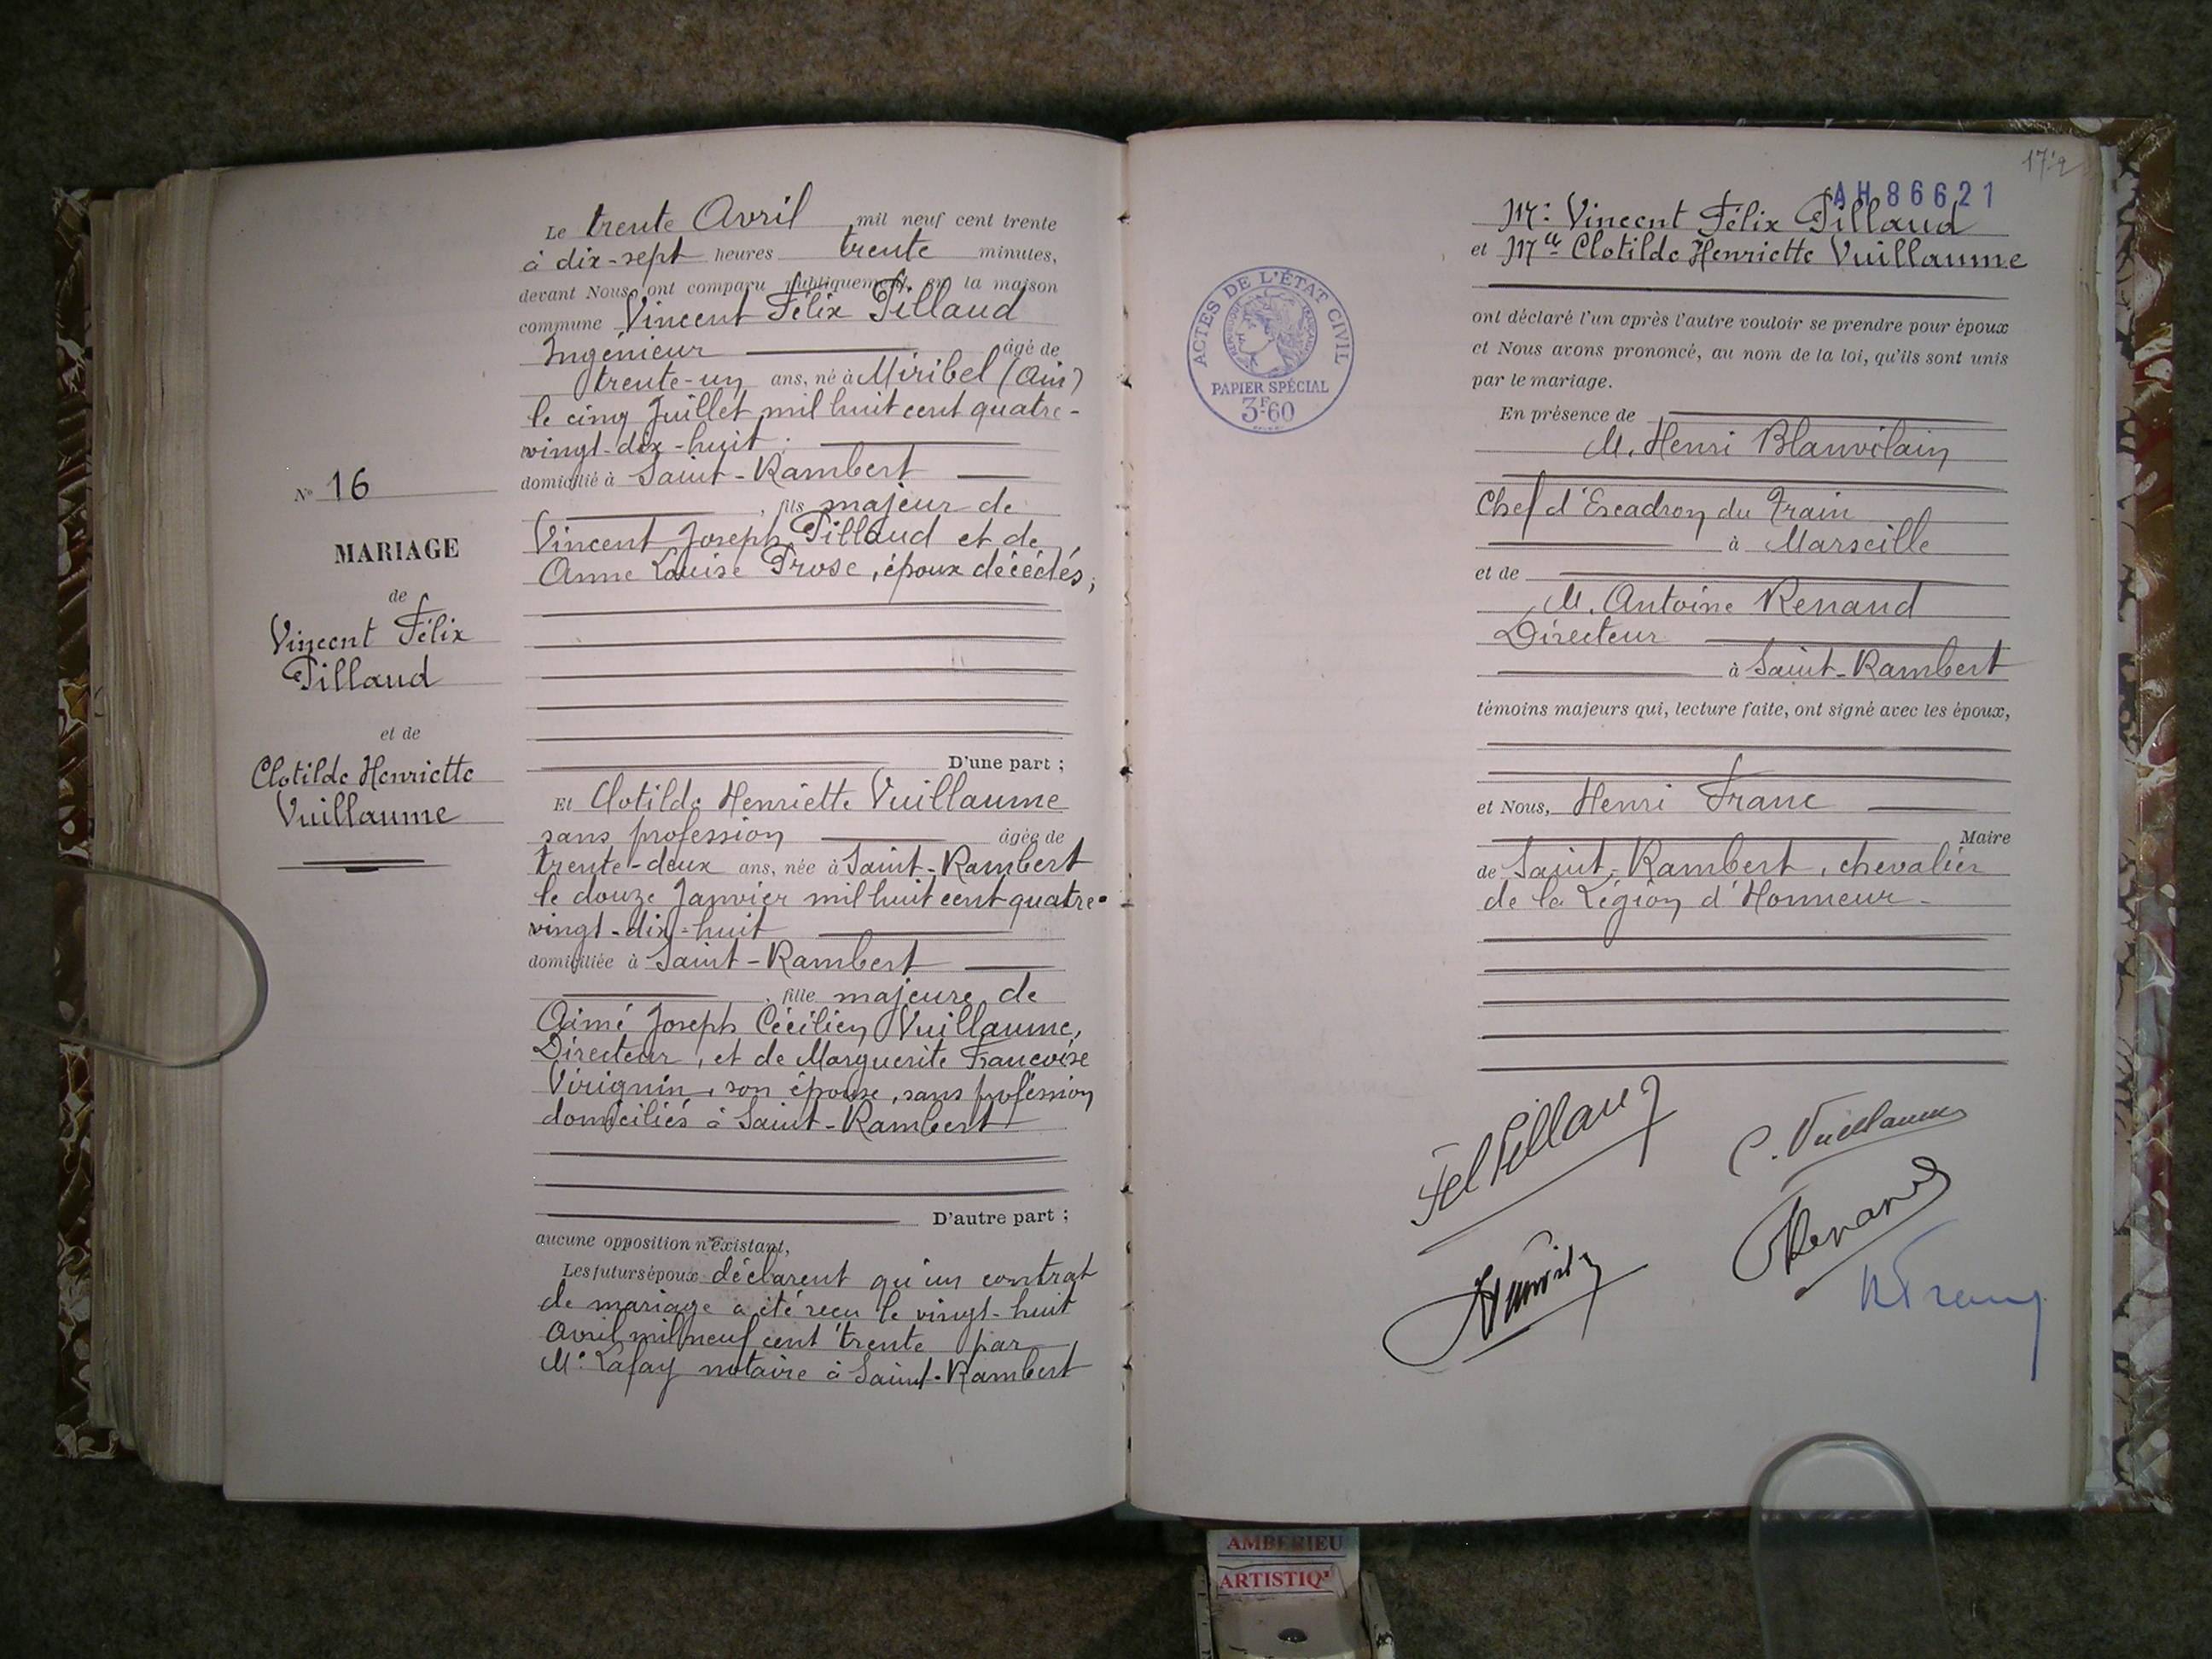 Le trente Avril mil neuf cent trente
à dix-sept heures trente minutes,
devant Nous ont comparu publiquement en la maison
commune Vincent Félix Pillaud
Ingénieur âgé de
trente-un ans, né à Miribel (Ain)
le cinq Juillet mil huit cent quatre-
vingt-dix-huit.
domicilié à Saint-Rambert
, fils majeur de
Vincent Joseph Pillaud et de
Anne Louise Prose, époux décédés,
D'une part ;
N° 16
MARIAGE
de
Vincent Félix
Pillaud
et de
Clotilde Henriette
Vuillaume
Et Clotilde Henriette Vuillaume
sans profession âgée de
trente-deux ans, née à Saint-Rambert
le douze Janvier mil huit cent quatre-
vingt-dix-huit
domiciliée à Saint-Rambert
, fille majeure de
Aimé Joseph Cécilien Vuillaume,
Directeur, et de Marguerite Francoise
Virignin, son épouse, sans profession
domiciliés à Saint-Rambert
D'autre part ;
aucune opposition n'existant,
Les futurs époux déclarent qu'un contrat
de mariage a été reçu le vingt-huit
Avril mil neuf cent trente par
Me Lafay notaire à Saint-Rambert
AH 86621
Mr Vincent Félix Pillaud
et Melle Clotilde Henriette Vuillaume
ACTES DE L'ÉTAT CIVIL
PAPIER SPÉCIAL
3F.60
ont déclaré l'un après l'autre vouloir se prendre pour époux
et Nous avons prononcé, au nom de la loi, qu'ils sont unis
par le mariage.
En présence de
M. Henri Blanvilain
Chef d'Escadron du Train
à Marseille
et de
M. Antoine Renaud
Directeur
à Saint-Rambert
témoins majeurs qui, lecture faite, ont signé avec les époux,
et Nous, Henri Franc
Maire
de Saint-Rambert, chevalier
de la Légion d'Honneur.
Fel Pillaud
C. Vuillaume
Renaud
H Franc
AMBERIEU
ARTISTIQ